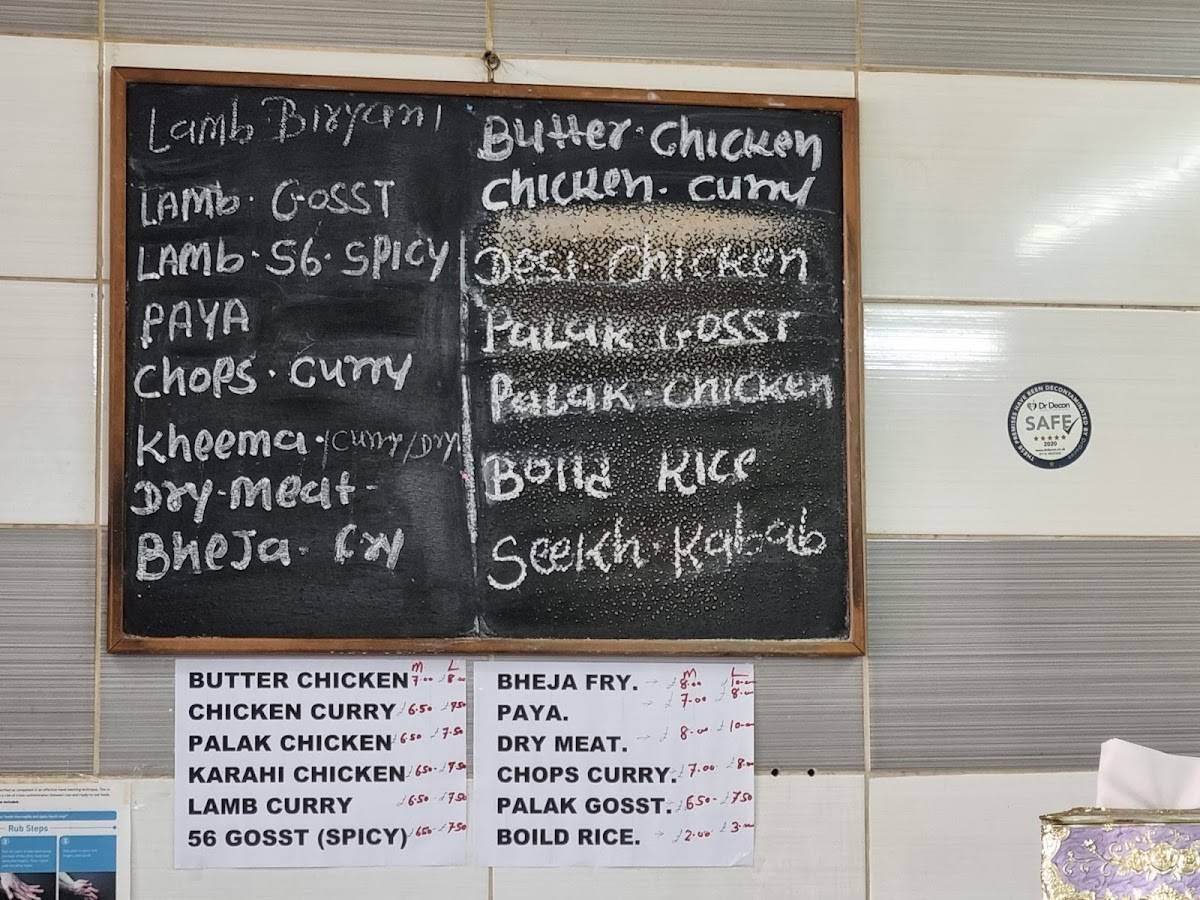 Lamb Biryani
LAMb. GOSST
LAMb. 56. SPICY
PAYA
Chops. Curry
Kheema. (Curry/Dry
Dry-Meat-
BheJa. Fry
Butter. Chicken
Chicken. Curry
Desi. Chicken
Palak GOSST
Palak. Chicken
Boild Rice
Seekh. Kabab
M L
BUTTER CHICKEN 7.00 £8.00
CHICKEN CURRY £6.50 £7.50
PALAK CHICKEN £6.50 £7.50
KARAHI CHICKEN £6.50- £7.50
LAMB CURRY £6.50 £7.50
56 GOSST (SPICY) £6.50 £7.50
M L
BHEJA FRY. → £8.00 £10.00
PAYA. → £7.00 £8.00
DRY MEAT. → £8.00 £10.00
CHOPS CURRY. £7.00 £8.00
PALAK GOSST. £6.50- £7.50
BOILD RICE. → £2.00 £3.00
THESE PREMISES HAVE BEEN DECONTAMINATED BY
Dr Decon
SAFE
2020
Rub Steps